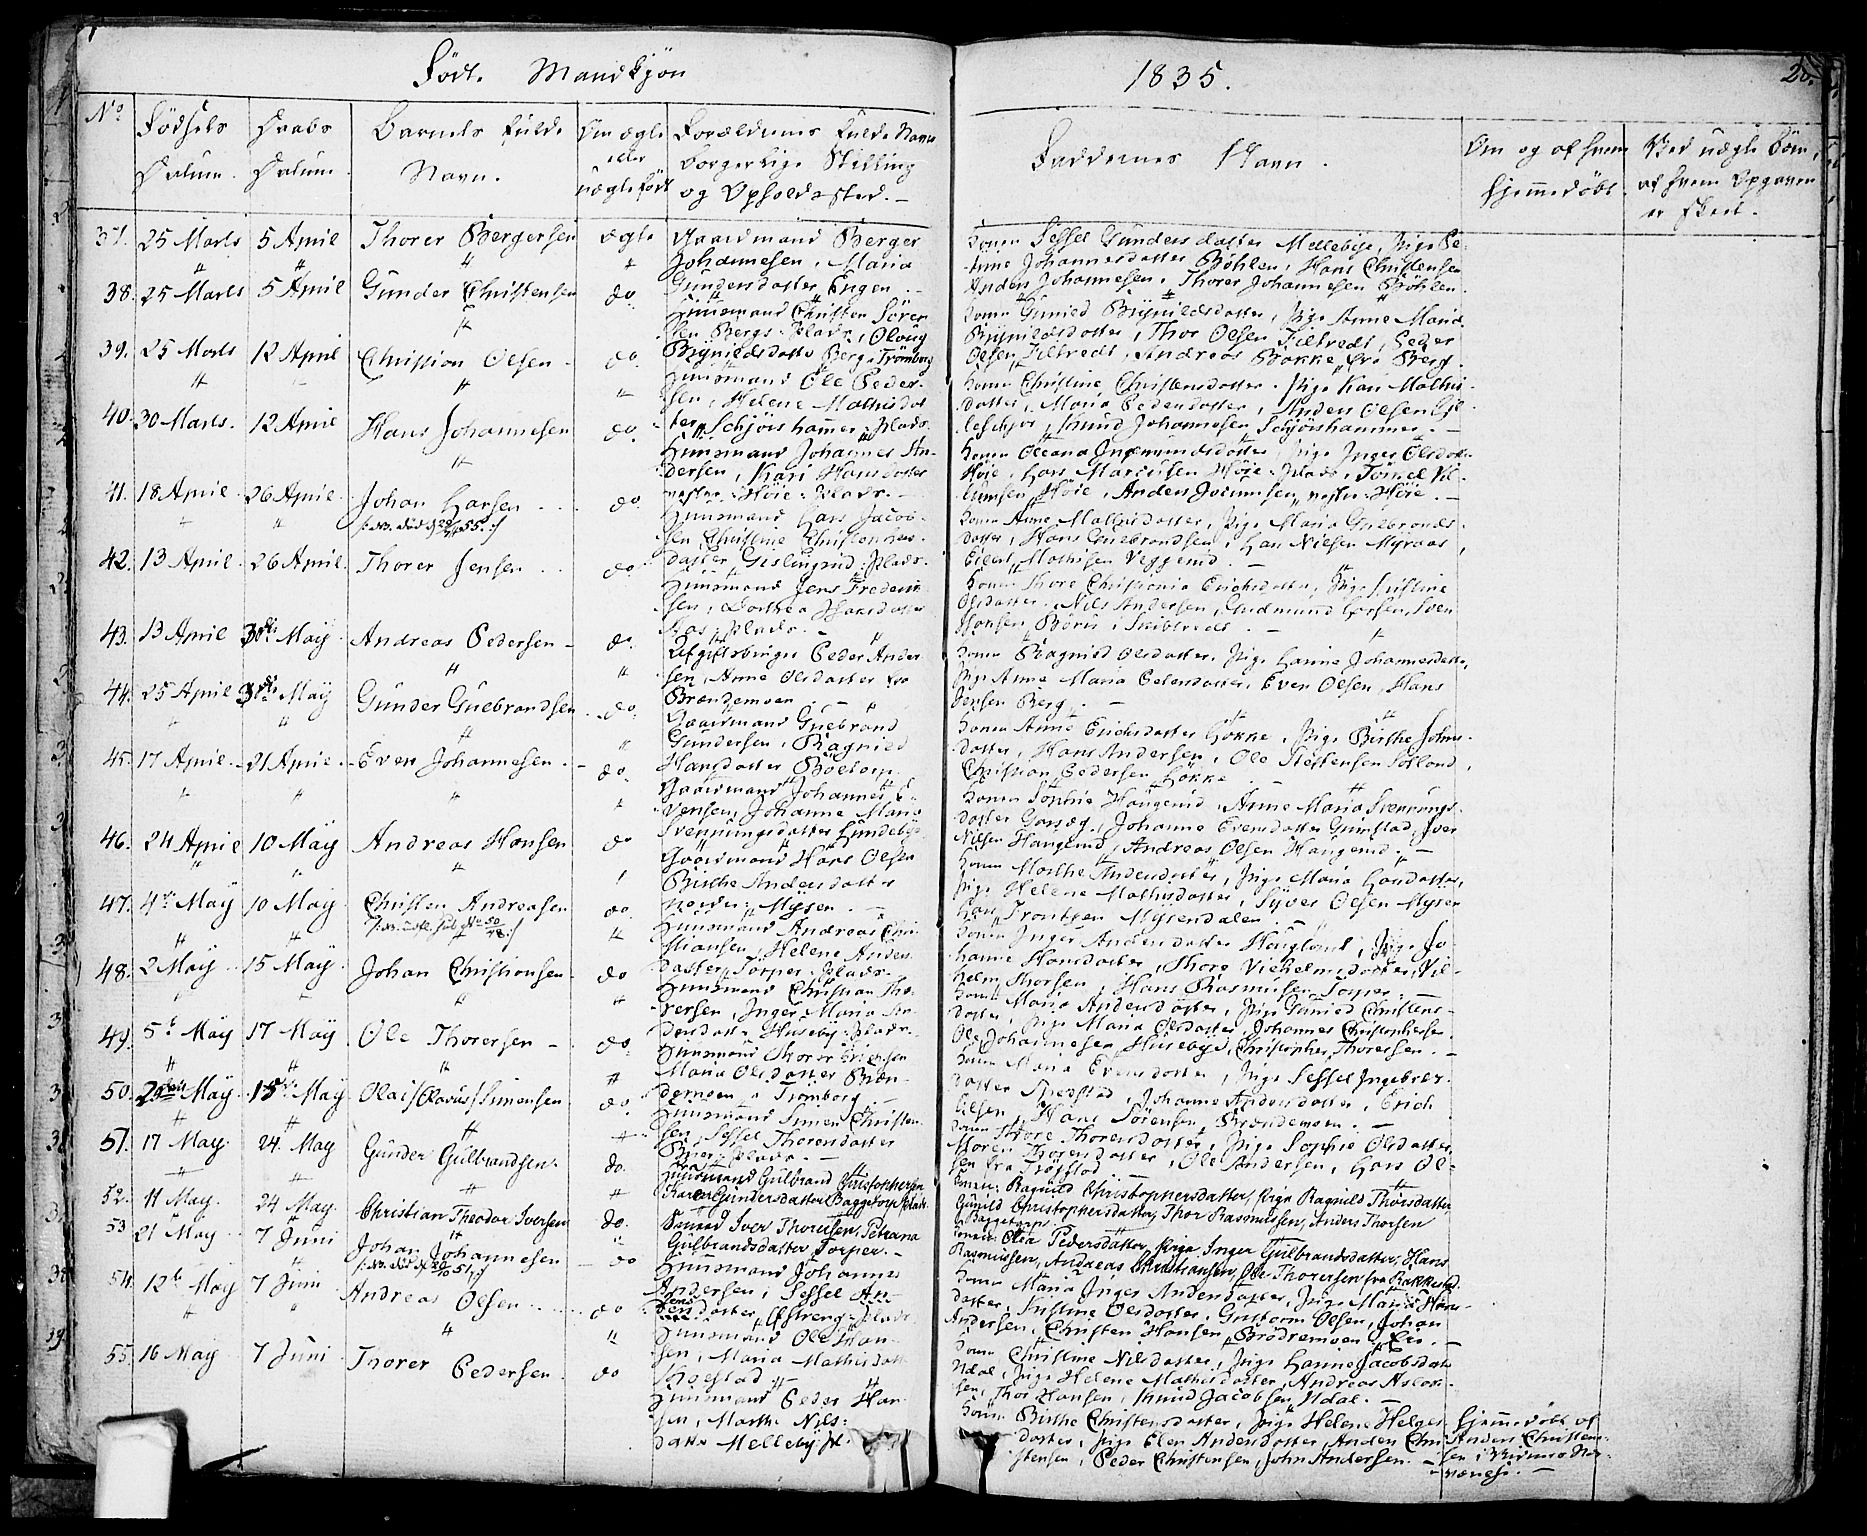 Født. Mandkjön
1835.
No
Fødsels Datum.
Daabs Datum.
Barnets fulde Navn.
Om ægte eller uægte født
Forældrenes fulde Navn borgerlige Stilling og Opholdssted.
Faddernes Navn.
Om og af hvem hjemmedöbt.
Ved uægte Börn, af hvem Opgaven er skeet.
37. 25 Marts 5 April Thorer Bergersen ægte
Gaardmand Berger
Johannesen, Maria
Gundersdatter Engen.
Konen Sessel Gundersdatter Mellebye, Pige
Johannesdatter Böhlen, Hans Christensen
Anders Johannesen, Thorer Johannesen Böhlen.
38. 25 Marts 5 April Gunder Christensen do.
Huusmand Christen Sören
sen Bergs-Plads, Oloug
Brynildsdatter Berg i Trömborg
Konen Gunild Brynildsdatter, Pige Anne Maria
Brynildsdatter, Thor Olsen Filtvedt, Peder
Olsen Filtvedt, Andreas Bakke fra Berg.
39. 25 Marts 12 April Christian Olsen do.
Huusmand Ole Peder-
sen, Helene Mathisdat
ter, Schjörshammer-Plads.
Konen Christine Christensdatter, Pige Kari Mathis
datter, Maria Pedersdatter, Anders Olsen
Knud Johannesen Schjörshammer.
40. 30 Marts. 12 April Hans Johannesen do.
Huusmand Johannes An-
dersen, Kari Hansdatter
Höie-Plads.
Konen Oleana Ingemundsdatter, Pige Inger Olsdatter
Höie, Lars Marcusen Höie-Plads,
Höie, Anders Höie.
41. 18 April 26 April. Johan Larsen do.
Huusmand Lars Jacob-
sen Christine Christens
datter Gislingrud-Plads.
Konen Anne Mathisdatter, Pige Maria Gulbrands
datter, Hans Gulbrandsen, Lars Nilsen Myraas,
Mathisen Veggerud.
42. 13 April 26 April. Thorer Jensen do.
Huusmand Jens Frederik
sen, Dorthea Hansdatter
Plads.
Konen Thore Christiania Erichsdatter, Pige
Olsdatter, Nils Andersen, Gudmund Larsen, Sven
Hansen
43. 13 April May Andreas Pedersen do.
Peder Ander
sen, Anne Olsdatter fra
Brændemoen.
Konen Ragnild Olsdatter, Pige Karine Johannesdatter,
Pige Anne Maria Pedersdatter, Even Olsen, Hans
Jensen Berg.
44. 25 April May Gunder Gulbrandsen do.
Gaardmand Gulbrand
Gundersen, Ragnild
Hansdatter Böetorp
Konen Anne Erichsdatter Løkke, Pige Birthe Johns
datter, Hans Andersen, Ole
Christian Pedersen Løkke
45. 17 April 21 April. Even Johannesen. do.
Gaardmand Johannes E-
vensen, Johanne Marie
Svenningsdatter Lundeby
Konen Sophie Haugerud, Anne Maria Svennings-
datter, Johanne Evensdatter Grimstad, Iver
Nilsen Haugerud, Andreas Olsen Haugerud.
46. 24 April 10 May Andreas Hansen do
Gaardmand Hans Olsen
Birthe Andersdatter
Nordre Mysen.
Konen Marthe Andersdatter, Pige Maria Larsdatter,
Pige Helene Mathisdatter, Syver Olsen Mysen
Lars Trondsen Mysendalen.
47. 4de May 10 May Christen Andreasen do
Huusmand Andreas Chri-
stiansen, Helene Anders
datter Torper-Plads.
Konen Inger Andersdatter Haugland, Pige Jo-
hanne Hansdatter, Thore Vilhelmsdatter, Vil-
helm Thorsen, Hans Rasmusen Torper.
48. 2 May 15 May Johan Christiansen do
Huusmand Christian Tho-
rersen, Inger Maria An-
dersdatter Huseby-Plads.
Konen Maria Andersdatter, Pige Gunild Christens-
datter, Pige Maria Olsdatter, Johannes Christophersen
Ole Johannesen Husebye, Christopher Thorersen.
49. 5te May 17 May Ole Thorersen do.
Huusmand Thorer Erichsen
Maria Olsdatter Bræn-
demoen i Trömborg
Konen Maria Evensdatter, Pige Sessel Ingebret.
datter, Johanne Andersdatter, Erich
Olsen, Hans Sörensen, Brændemoen.
50. May May Olai/Olavus/Simensen do.
Huusmand Simen Christen
sen, Sessel Thorersdatter
Plads.
Konen Thore Thorersdatter, Pige Sophie Olsdatter,
Maren Thorersdatter, Ole Andersen, Lars Ol-
sen fra Trögstad
51. 17 May. 24 May Gunder Gulbrandsen. do.
Huusmand Gulbrand Christophersen
Thore Gundersdatter Baggetorp Plads
Konen: Ragnild Christophersdatter, Pige Ragnild Thorsdatter,
Gunild Christophersdatter, Thor Rasmussen, Anders Thorsen
Baggetorp.
52. 11 May. 24 May. Christian Theodor Iversen do.
Iver Thorersen, Petrana
Gulbrandsdatter Torper.
Konen: Olea Pedersdatter, Pige Inger Gulbrandsdatter, Hans
Rasmussen, Andreas Christiansen, Ole Thorersen fra Rakkestad.
53 21 May 7 Juni Johan Johannesen do
Huusmand Johannes
Andersen, Sessel An-
dersdatter, Plads
Konen Maria Inger Andersdatter, Pige Maria Hans-
datter, Olsdatter, Guttorm Olsen, Johan
Andersen, Christen Hansen Brödremoen
54 12te May 7 Juni Andreas Olsen do
Huusmand Ole Han-
sen, Maria Mathisdatt
Konen Christine Nilsdatter, Pige Karine Jacobsdat
Udal, Pige Helene Mathisdatter, Andreas Aslak
sen, Thor Hansen, Knud Jacobsen Udal.
55. 16 May 7 Juni Thorer Pedersen do
Huusmand Peder Han-
sen, Marthe Nils-
datter Melleby
Konen Birthe Christensdatter, Pige Helene Helges
datter, Pige Elen Andersdatter, Anders Chri
stensen, Peder Christensen, John Andersen.
Hjemmedöbt af
Anders Christen-
sen